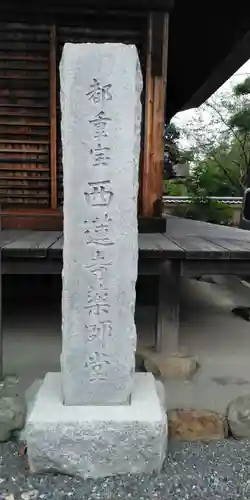 都重宝西蓮寺薬師堂